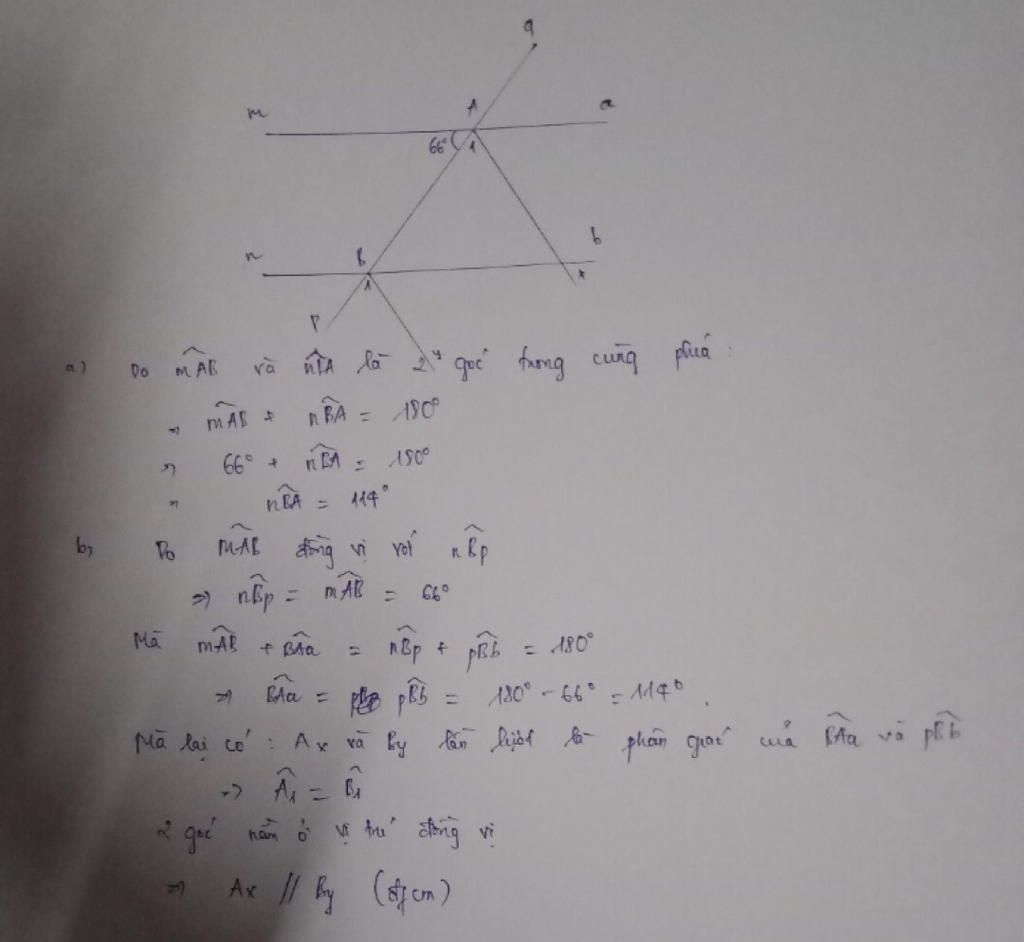 q
m A a
66° 1
n B b
1 x
P
y
a) Do mÂB và nB̂A là 2 góc trong cùng phía:
=> mÂB + nB̂A = 180°
=> 66° + nB̂A = 180°
=> nB̂A = 114°
b, Do mÂB đồng vị với nB̂p
=> nB̂p = mÂB = 66°
Mà mÂB + BÂa = nB̂p + pB̂b = 180°
=> BÂa = pB̂b = 180° - 66° = 114°.
Mà lại có: Ax và By lần lượt là phân giác của BÂa và pB̂b
=> Â1 = B̂1
2 góc nằm ở vị trí đồng vị
=> Ax // By (đfcm)